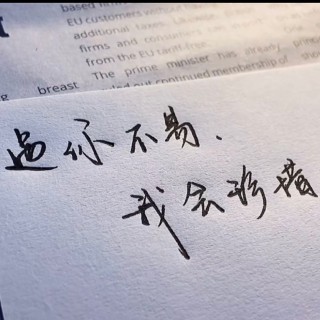 based
EU customers without having
additional taxes.
firms and consumers can
from the EU tariff-free.
The prime minister has already
breast
continued membership of
遇你不易、
我会珍惜